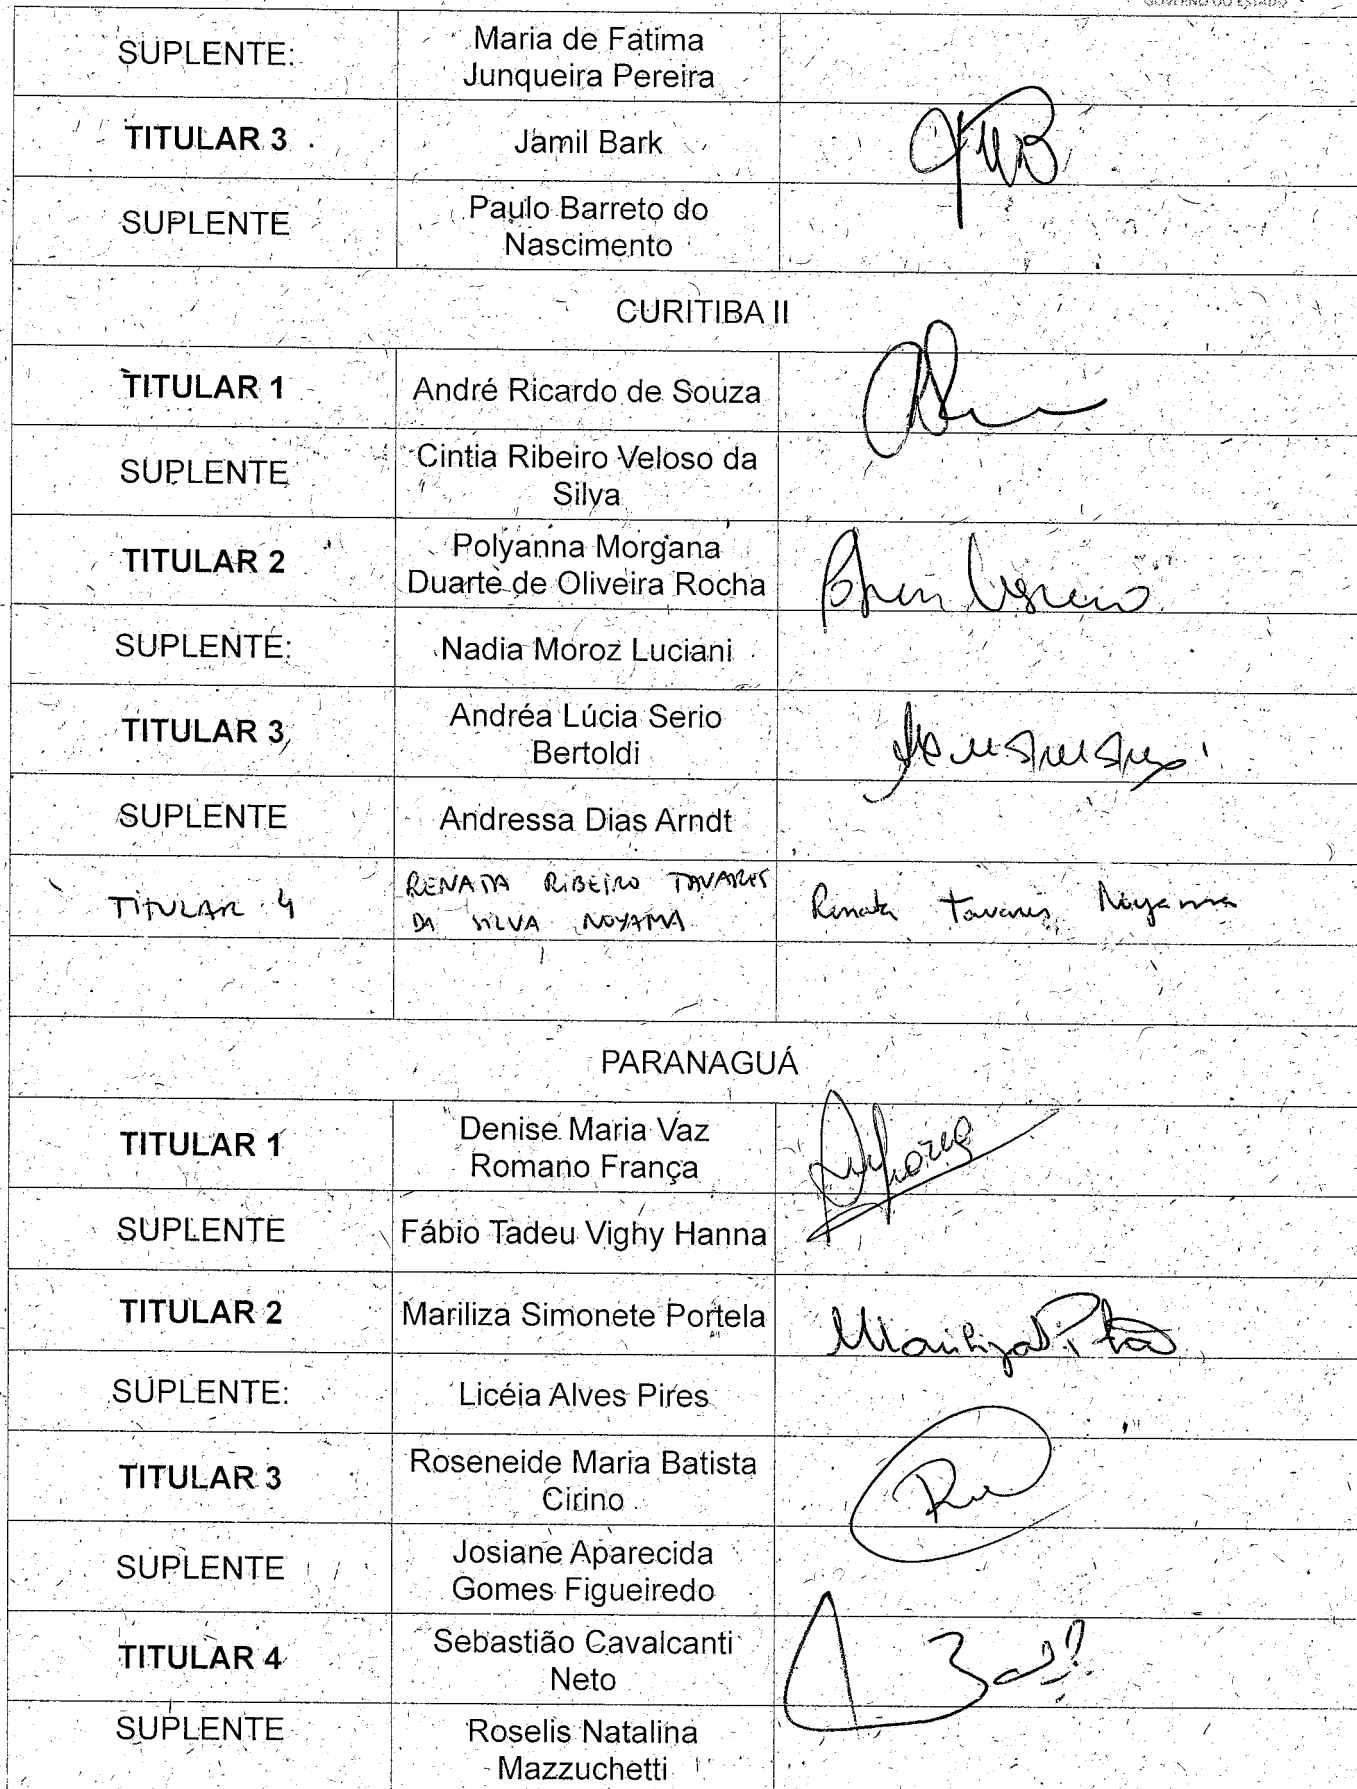 GOVERNO DO ESTADO
SUPLENTE:
Maria de Fatima
Junqueira Pereira
TITULAR 3
Jamil Bark
SUPLENTE
Paulo Barreto do
Nascimento
CURITIBA II
TITULAR 1
André Ricardo de Souza
SUPLENTE
Cintia Ribeiro Veloso da
Silva
TITULAR 2
Polyanna Morgana
Duarte de Oliveira Rocha
SUPLENTE:
Nadia Moroz Luciani
TITULAR 3
Andréa Lúcia Serio
Bertoldi
SUPLENTE
Andressa Dias Arndt
TITULAR 4
RENATA RIBEIRO TAVARES
DA SILVA NOYAMA
Renata Tavares Noyama
PARANAGUÁ
TITULAR 1
Denise Maria Vaz
Romano França
SUPLENTE
Fábio Tadeu Vighy Hanna
TITULAR 2
Mariliza Simonete Portela
SUPLENTE:
Licéia Alves Pires
TITULAR 3
Roseneide Maria Batista
Cirino
SUPLENTE
Josiane Aparecida
Gomes Figueiredo
TITULAR 4
Sebastião Cavalcanti
Neto
SUPLENTE
Roselis Natalina
Mazzuchetti